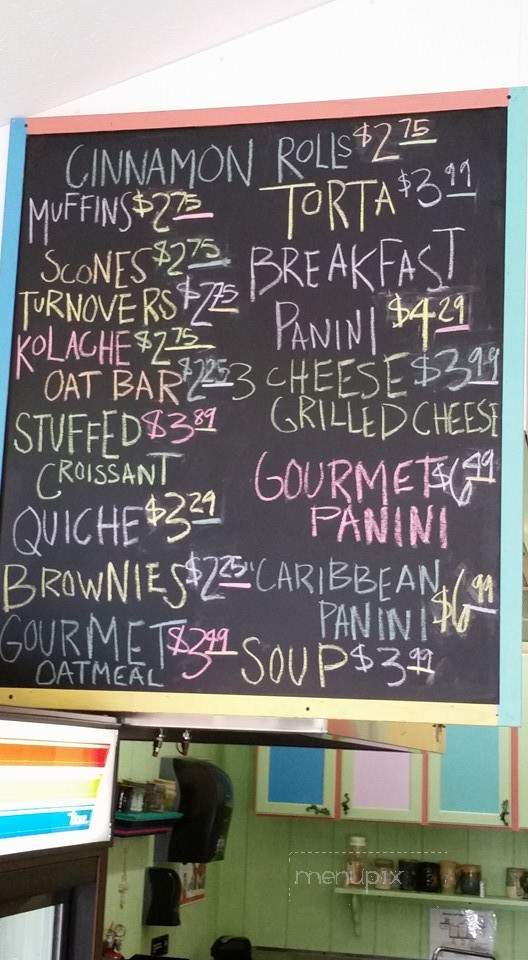 CINNAMON ROLLS $2.75
MUFFINS $2.75
SCONES $2.75
TURNOVERS $2.75
KOLACHE $2.75
OAT BAR $2.25
STUFFED $3.89
CROISSANT
QUICHE $3.29
BROWNIES $2.25
GOURMET $3.99
OATMEAL
TORTA $3.99
BREAKFAST
PANINI $4.29
3 CHEESE $3.99
GRILLED CHEESE
GOURMET $6.49
PANINI
"CARIBBEAN
PANINI $6.99
SOUP $3.99
menupix